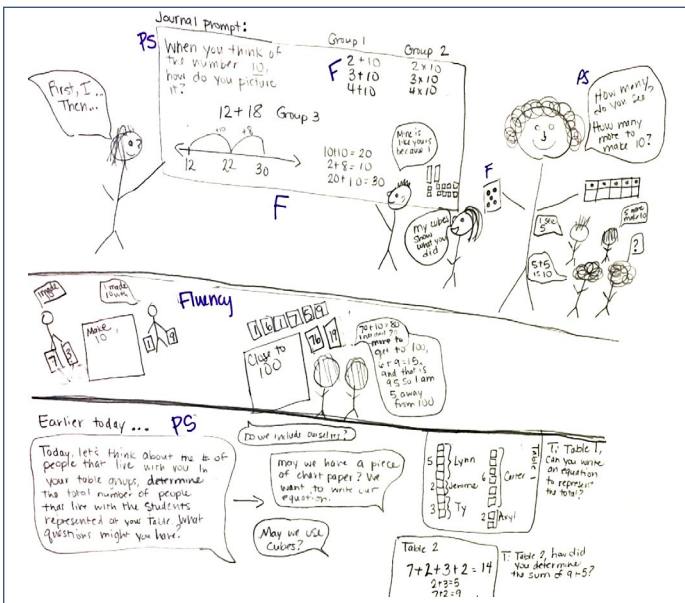 Journal prompt:
PS
When you think of
the number 10,
how do you picture
it?
Group 1
2+10
3+10
4+10
F
Group 2
2x10
3x10
4x10
First, I...
Then...
12+18 Group 3
+10 +8
12 22 30
10+10=20
2+8=10
20+10=30
Mine is
like yours
because I
my cubes
show
what you
did
F
F
PS
How many
do you see,
How many
more to
make 10?
I see
5
5 more
make 10
?
5+5
is 10
Fluency
I made
7 3
Make
10
I made
10 with
1 9
1 6 1 7 5 9
Close to
100
76 19
70+10=80
more to
get to 100,
6+9=15.
and that is
95 so I am
5 away
from 100
Earlier today... PS
Today, let's think about the # of
people that live with you. In
your table groups, determine
the total number of people
that live with the students
represented at your Table. What
questions might you have?
Do we include ourselves?
may we have a piece
of chart paper? We
want to write our
equation.
May we use
cubes?
5 Lynn
2 Jerome
3 Ty
6 Carter
2 Aryl
Table 1
T: Table 1,
Can you write
an equation
to represent
the total?
Table 2
7+2+3+2=14
2+3=5
7+2=9
T: Table 2, how did
you determine
the sum of 9+5?